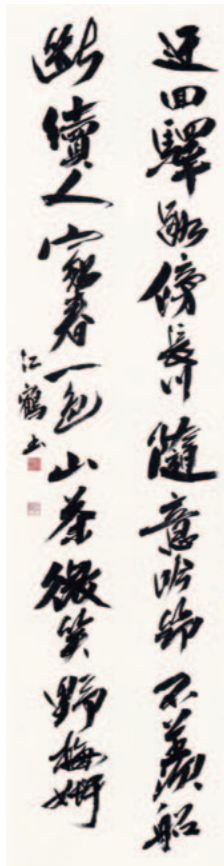 迂回驛路傍長川隨意吟筇不羨船
斷續人家春一色山茶微笑野梅妍
江鶴